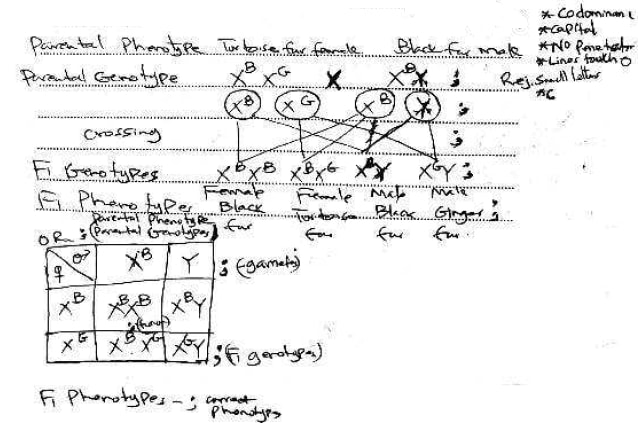 * Codominan
* Capital
* No penetrator
* Lines touch O
Rej. Small letter
Parental Phenotype Tortoise fur female Black fur male
Parental Genotype X^B X^G X X^B Y ;
X^B X^G X^B Y ;
Crossing ;
F1 Genotypes X^B X^B X^B X^G X^B Y X^G Y ;
F1 Phenotypes Female Female Male Male
Black Tortoise Black Ginger ;
fur fur fur fur.
OR ; (Parental Phenotype
Parental Genotypes)
♀ ♂ X^B Y ; (gametes)
X^B X^B X^B X^B Y
X^G X^B X^G X^G Y ; (F1 genotypes)
F1 Phenotypes - ; correct
Phenotypes